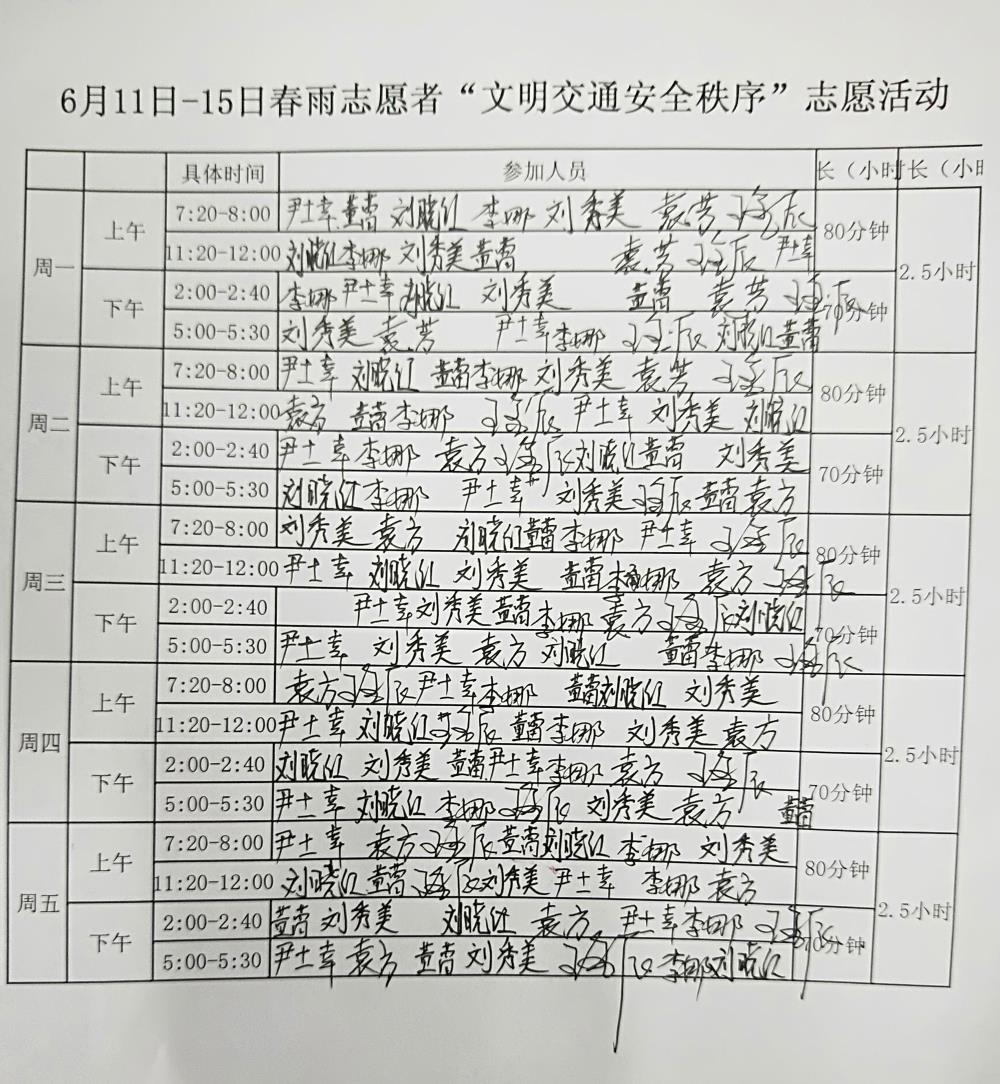 6月11日-15日春雨志愿者“文明交通安全秩序”志愿活动
具体时间 参加人员 长（小时 长（小时
周一 上午 7:20-8:00 尹士幸 刘晓红 李娜 刘秀美 袁芳 80分钟 2.5小时
11:20-12:00 刘晓红 李娜 刘秀美 袁芳 尹士幸
下午 2:00-2:40 李娜 尹士幸 刘晓红 刘秀美 袁芳 70分钟
5:00-5:30 刘秀美 袁芳 尹士幸 李娜 刘晓红
周二 上午 7:20-8:00 尹士幸 刘晓红 李娜 刘秀美 袁芳 80分钟 2.5小时
11:20-12:00 袁方 李娜 尹士幸 刘秀美 刘晓红
下午 2:00-2:40 尹士幸 李娜 袁方 刘晓红 刘秀美 70分钟
5:00-5:30 刘晓红 李娜 尹士幸 刘秀美 袁方
周三 上午 7:20-8:00 刘秀美 袁方 刘晓红 李娜 尹士幸 80分钟 2.5小时
11:20-12:00 尹士幸 刘晓红 刘秀美 李娜 袁方
下午 2:00-2:40 尹士幸 刘秀美 李娜 袁方 刘晓红 70分钟
5:00-5:30 尹士幸 刘秀美 袁方 刘晓红 李娜
周四 上午 7:20-8:00 袁方 尹士幸 李娜 刘晓红 刘秀美 80分钟 2.5小时
11:20-12:00 尹士幸 刘晓红 李娜 刘秀美 袁方
下午 2:00-2:40 刘晓红 刘秀美 尹士幸 李娜 袁方 70分钟
5:00-5:30 尹士幸 刘晓红 李娜 刘秀美 袁方
周五 上午 7:20-8:00 尹士幸 袁方 刘晓红 李娜 刘秀美 80分钟 2.5小时
11:20-12:00 刘晓红 刘秀美 尹士幸 李娜 袁方
下午 2:00-2:40 刘秀美 刘晓红 袁方 尹士幸 李娜 70分钟
5:00-5:30 尹士幸 袁方 刘秀美 李娜 刘晓红